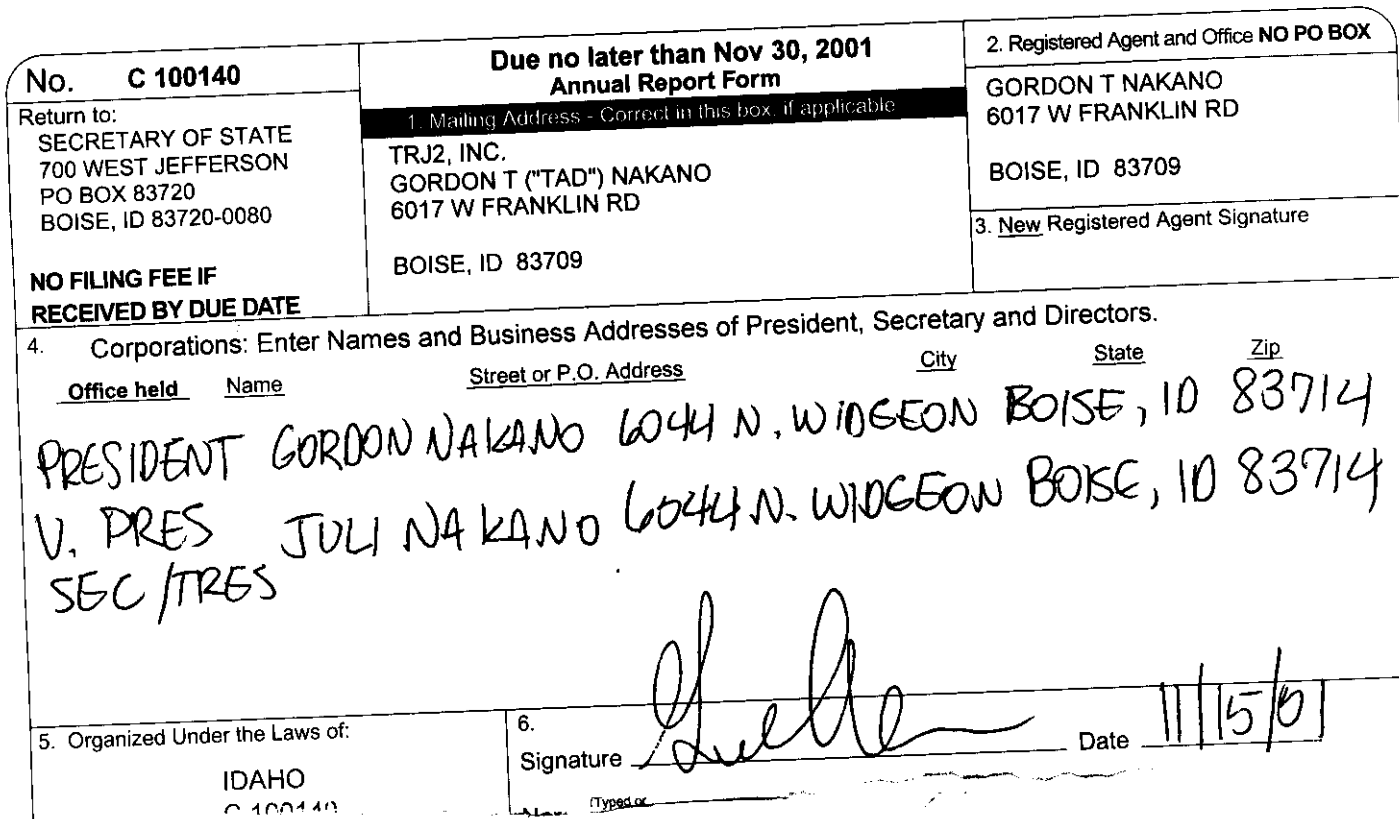 No. C 100140
Return to:
SECRETARY OF STATE
700 WEST JEFFERSON
PO BOX 83720
BOISE, ID 83720-0080
NO FILING FEE IF
RECEIVED BY DUE DATE
Due no later than Nov 30, 2001
Annual Report Form
1. Mailing Address - Correct in this box, if applicable
TRJ2, INC.
GORDON T ("TAD") NAKANO
6017 W FRANKLIN RD
BOISE, ID 83709
2. Registered Agent and Office NO PO BOX
GORDON T NAKANO
6017 W FRANKLIN RD
BOISE, ID 83709
3. New Registered Agent Signature
4. Corporations: Enter Names and Business Addresses of President, Secretary and Directors.
Office held Name Street or P.O. Address City State Zip
PRESIDENT GORDON NAKANO 6044 N. WIDGEON BOISE, ID 83714
V. PRES JULI NAKANO 6044 N. WIDGEON BOISE, ID 83714
SEC/TRES
5. Organized Under the Laws of:
IDAHO
C 100140
6.
Signature Date 11/15/01
(Typed or